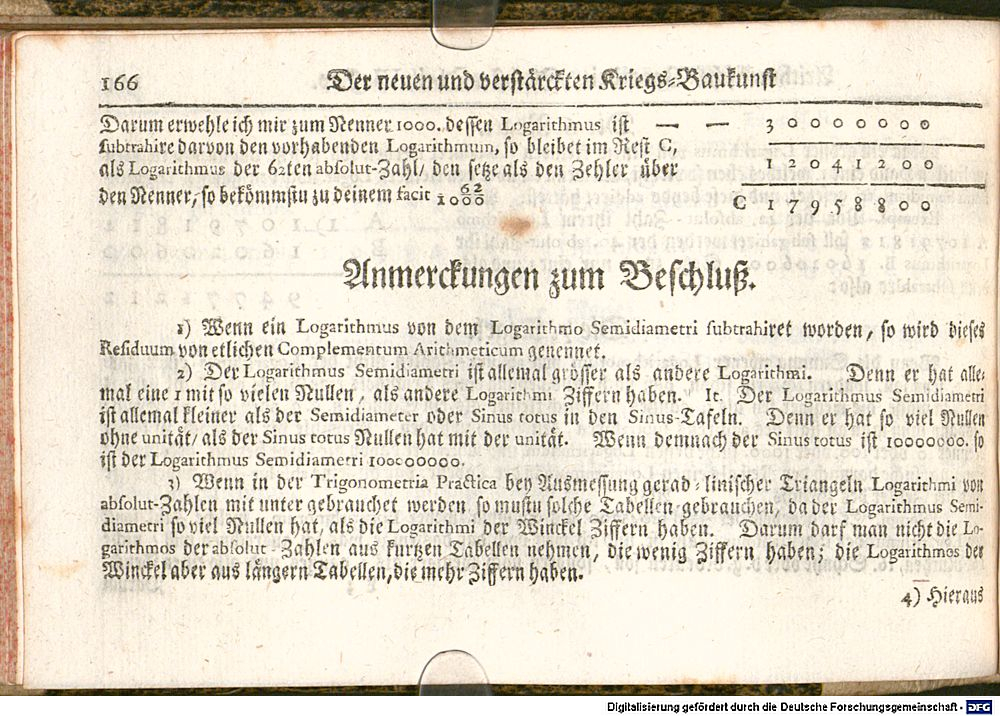 166 Der neuen und verstärckten Kriegs-Baukunst
Darum erwehle ich mir zum Nenner 1000. dessen Logarithmus ist — — 30000000
subtrahire darvon den vorhabenden Logarithmum, so bleibet im Rest C,
als Logarithmus der 62ten absolut-Zahl/ den setze als den Zehler über 12041200
den Nenner, so bekömmstu zu deinem facit 62/1000 C 17958800
Anmerckungen zum Beschluß.
1) Wenn ein Logarithmus von dem Logarithmo Semidiametri subtrahiret worden, so wird dieses
Residuum von etlichen Complementum Arithmeticum genennet.
2) Der Logarithmus Semidiametri ist allemal grösser als andere Logarithmi. Denn er hat alle-
mal eine 1 mit so vielen Nullen, als andere Logarithmi Ziffern haben. It. Der Logarithmus Semidiametri
ist allemal kleiner als der Semidiameter oder Sinus totus in den Sinus-Tafeln. Denn er hat so viel Nullen
ohne unität/ als der Sinus totus Nullen hat mit der unität. Wenn demnach der Sinus totus ist 10000000. so
ist der Logarithmus Semidiametri 100000000.
3) Wenn in der Trigonometria Practica bey Ausmessung gerad-linischer Triangeln Logarithmi von
absolut-Zahlen mit unter gebrauchet werden so mustu solche Tabellen gebrauchen, da der Logarithmus Semi-
diametri so viel Nullen hat, als die Logarithmi der Winckel Ziffern haben. Darum darf man nicht die Lo-
garithmos der absolut-Zahlen aus kurtzen Tabellen nehmen, die wenig Ziffern haben; die Logarithmos der
Winckel aber aus längern Tabellen, die mehr Ziffern haben.
4) Hieraus
Digitalisierung gefördert durch die Deutsche Forschungsgemeinschaft - DFG